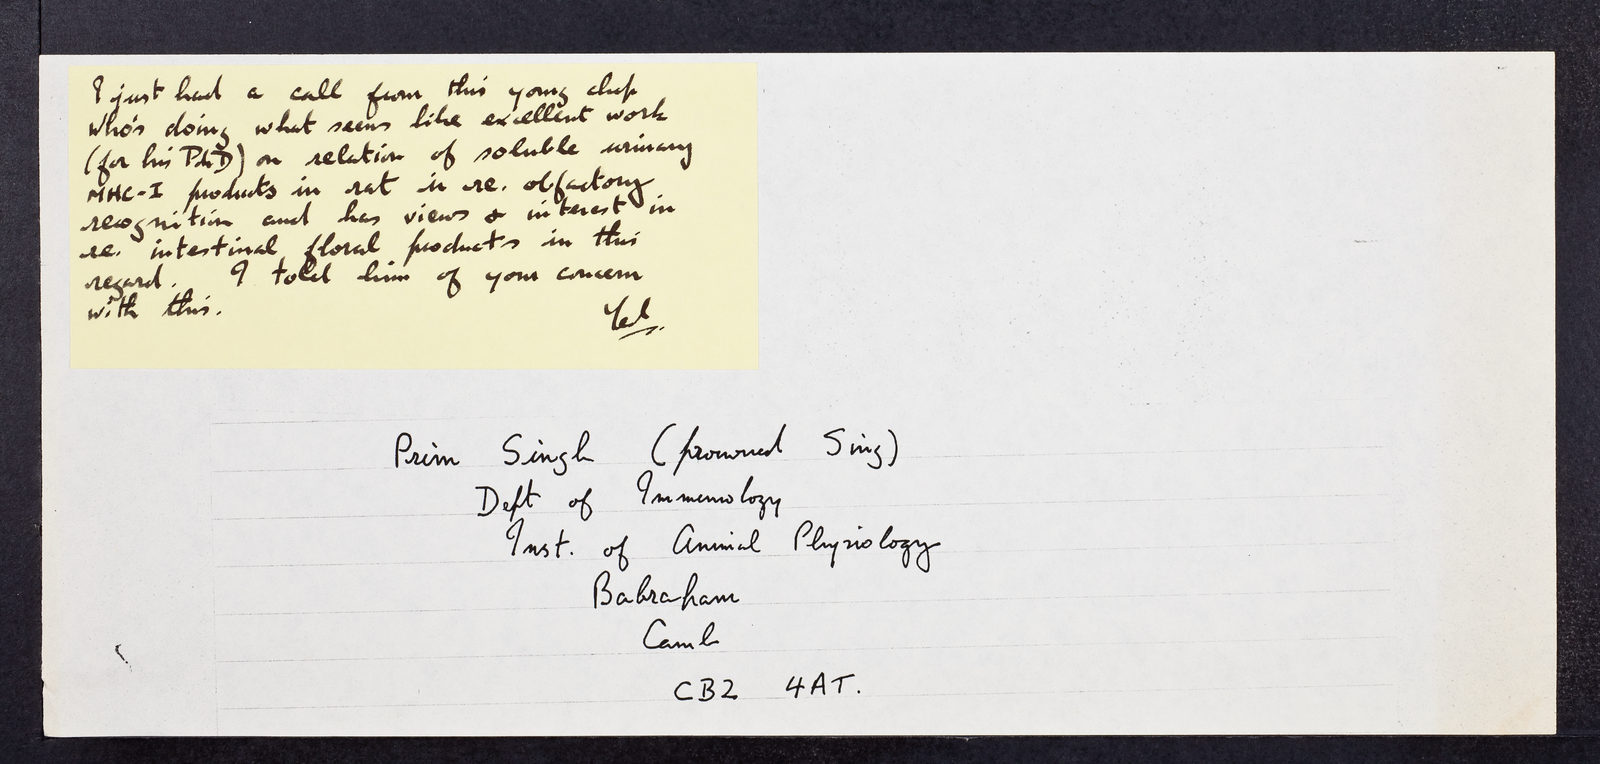 I just had a call from this young chap
who's doing what seems like excellent work
(for his PhD) on relation of soluble urinary
MHC-I products in rat in re. olfactory
recognition and has views & interest in
re. intestinal floral products in this
regard. I told him of your concern
with this.
Ted
Prim Singh (pronounced Sing)
Dept of Immunology
Inst. of Animal Physiology
Babraham
Camb
CB2 4AT.